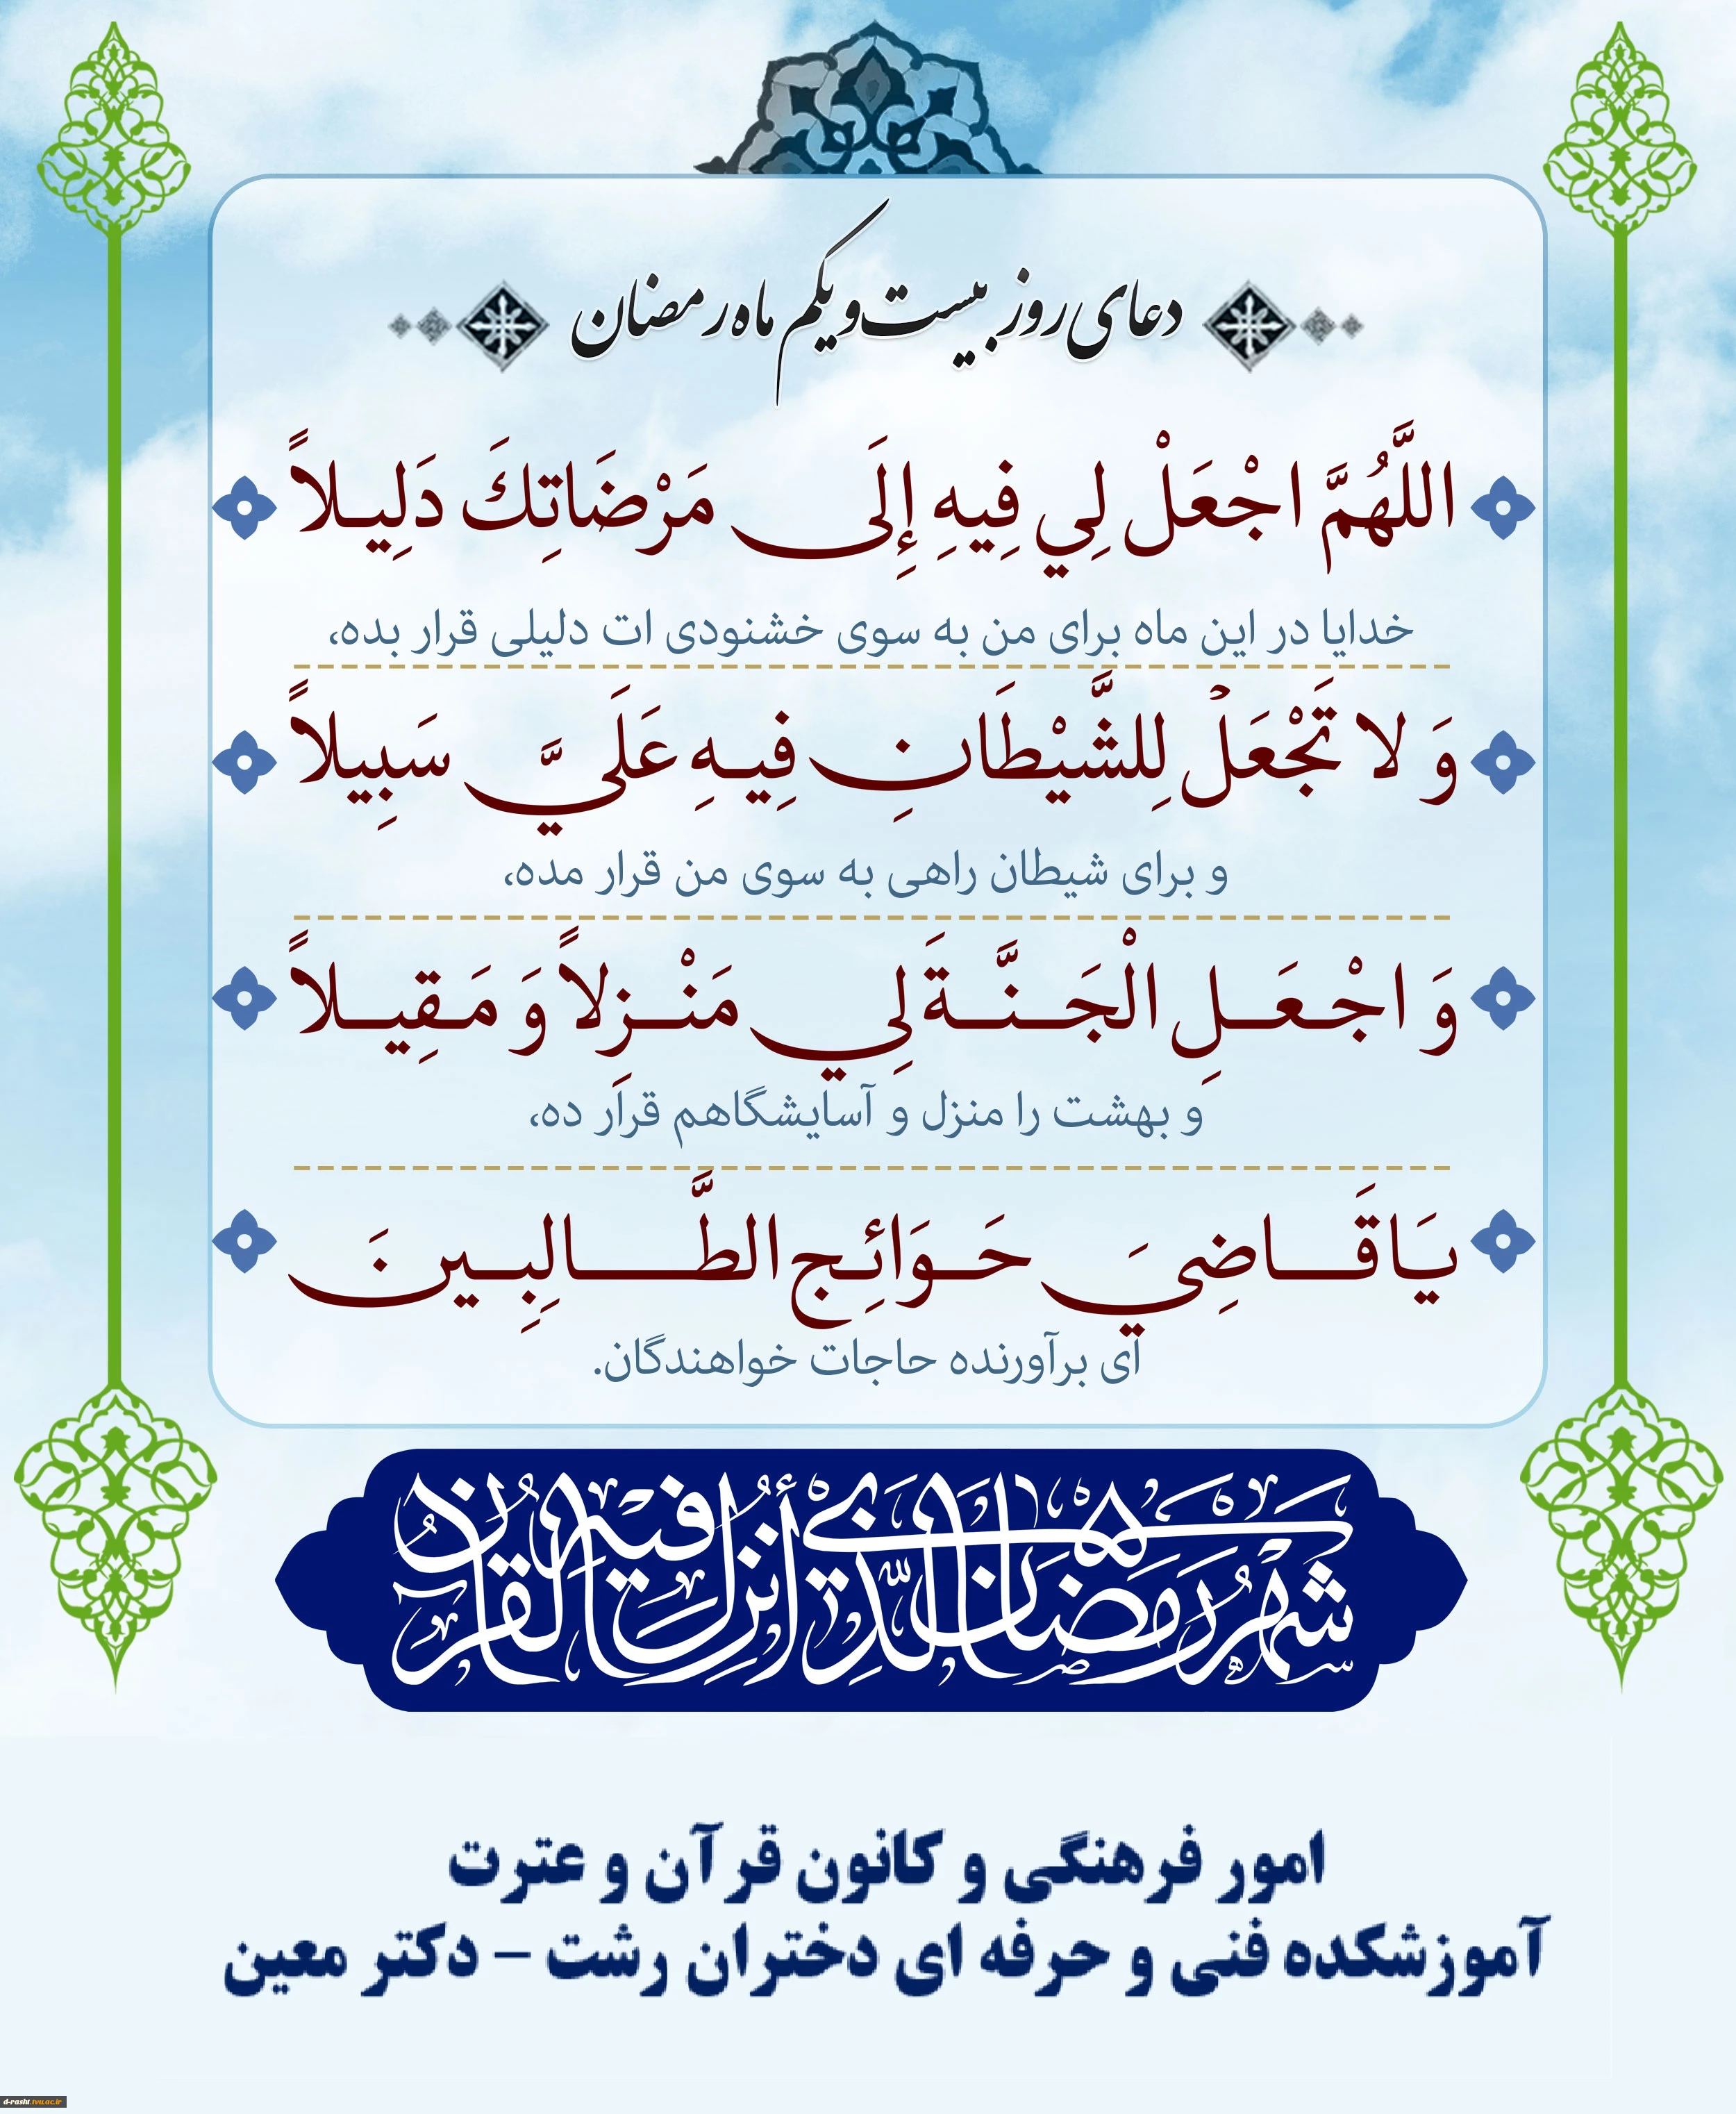 دعای روز بیست و یکم ماه رمضان
اللَّهُمَّ اجْعَلْ لِي فِيهِ إِلَى مَرْضَاتِكَ دَلِيلاً
خدایا در این ماه برای من به سوی خشنودی ات دلیلی قرار بده،
وَ لا تَجْعَلْ لِلشَّيْطَانِ فِيهِ عَلَيَّ سَبِيلاً
و برای شیطان راهی به سوی من قرار مده،
وَ اجْعَلِ الْجَنَّةَ لِي مَنْزِلاً وَ مَقِيلاً
و بهشت را منزل و آسایشگاهم قرار ده،
يَا قَاضِيَ حَوَائِجِ الطَّالِبِينَ
ای برآورنده حاجات خواهندگان.
شهر رمضان الذي أنزل فيه القرآن
امور فرهنگی و کانون قرآن و عترت
آموزشکده فنی و حرفه ای دختران رشت – دکتر معین
d-rasht.tvu.ac.ir